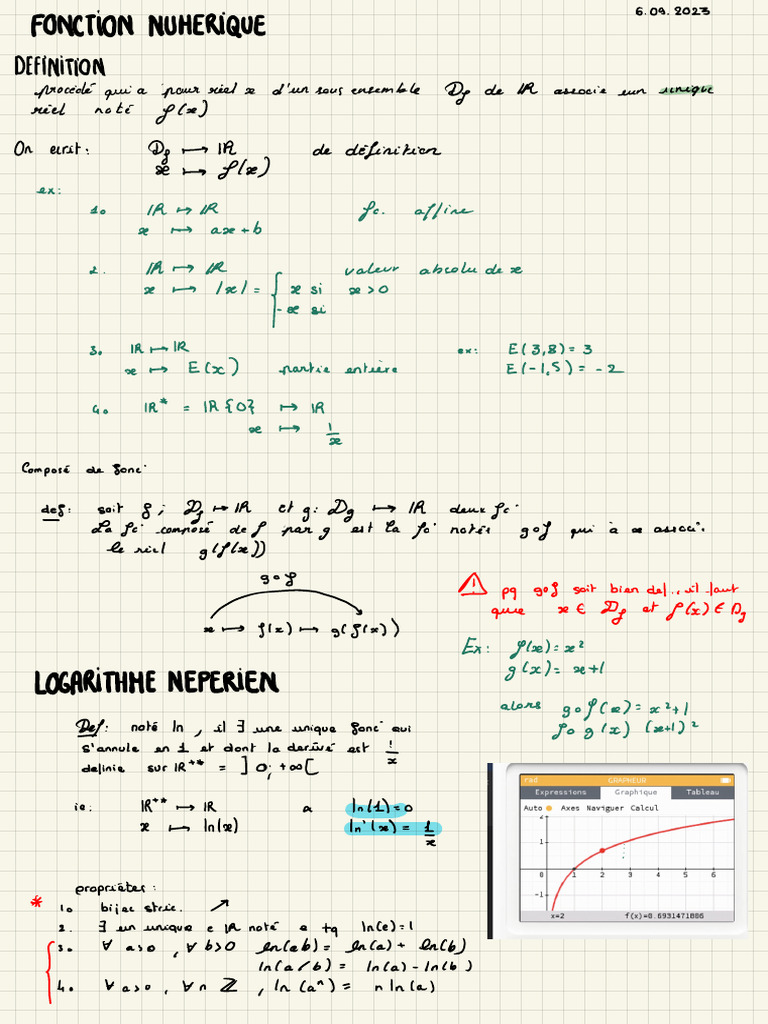 6.09.2023
FONCTION NUMERIQUE
DEFINITION
procédé qui a pour réel x d'un sous ensemble Df de IR associe un unique
réel noté f(x)
On ecrit: Df ↦ IR de définition
x ↦ f(x)
ex:
1. IR ↦ IR fc. affine
x ↦ ax+b
2. IR ↦ IR valeur absolu de x
x ↦ |x| = { x si x>0
-x si
3. IR ↦ IR ex: E(3,8) = 3
x ↦ E(x) partie entière E(-1,5) = -2
4. IR* = IR{0} ↦ IR
x ↦ 1/x
Composé de fonc:
def: soit f; Df ↦ IR et g: Dg ↦ IR deux fc:
La fc: composé de f par g est la fc notée gof qui à x associ.
le réel g(f(x))
gof
x ↦ f(x) ↦ g(f(x))
! pq gof soit bien def., il faut
que x ∈ Df et f(x) ∈ Dg
Ex: f(x) = x²
g(x) = x+1
alors gof(x) = x²+1
fog(x) (x+1)²
LOGARITHME NEPERIEN
Def: noté ln, il ∃ une unique fonc qui
s'annule en 1 et dont la derivé est 1/x
definie sur IR+* = ]0;+∞[
ie: IR+* ↦ IR a ln(1)=0
x ↦ ln(x) ln'(x) = 1/x
rad GRAPHEUR
Expressions Graphique Tableau
Auto Axes Naviguer Calcul
2
1
-1
1 2 3 4 5 6
x=2 f(x)=0.6931471806
propriétés:
* 1. bijec stric. ↗
2. ∃ un unique e IR noté e tq ln(e)=1
3. ∀ a>0, ∀ b>0 ln(ab) = ln(a) + ln(b)
ln(a/b) = ln(a) - ln(b)
4. ∀ a>0, ∀ n ℤ, ln(aⁿ) = n ln(a)